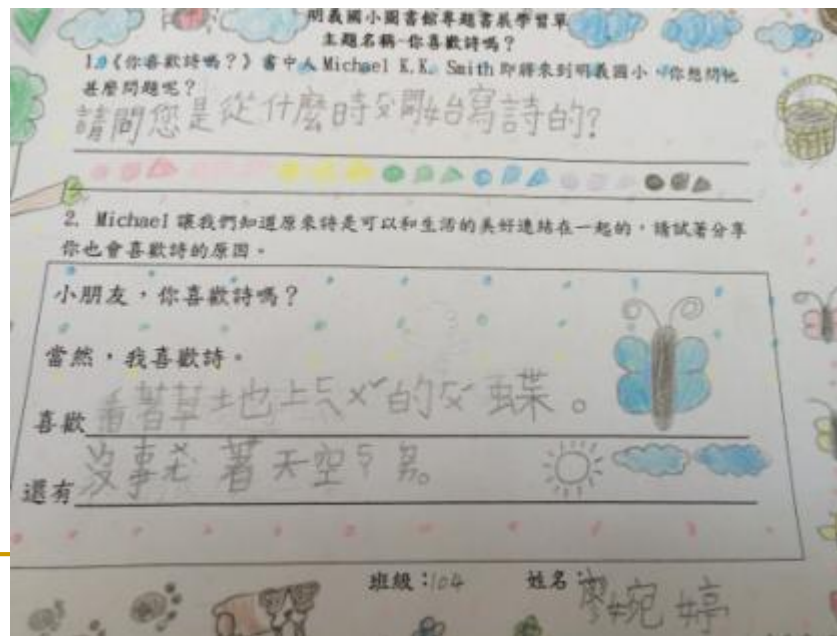 明義國小圖書館專題書展學習單
主題名稱-你喜歡詩嗎？
1.《你喜歡詩嗎？》書中人 Michael K.K. Smith 即將來到明義國小，你想問他
甚麼問題呢？
請問您是從什麼時ㄎ開始寫詩的?
2. Michael 讓我們知道原來詩是可以和生活的美好連結在一起的，請試著分享
你也會喜歡詩的原因。
小朋友，你喜歡詩嗎？
當然，我喜歡詩。
喜歡看著草地上ㄎㄨˇ的ㄈㄨˊ蝶。
還有沒事 著天空
班級：104 姓名 廖婉婷